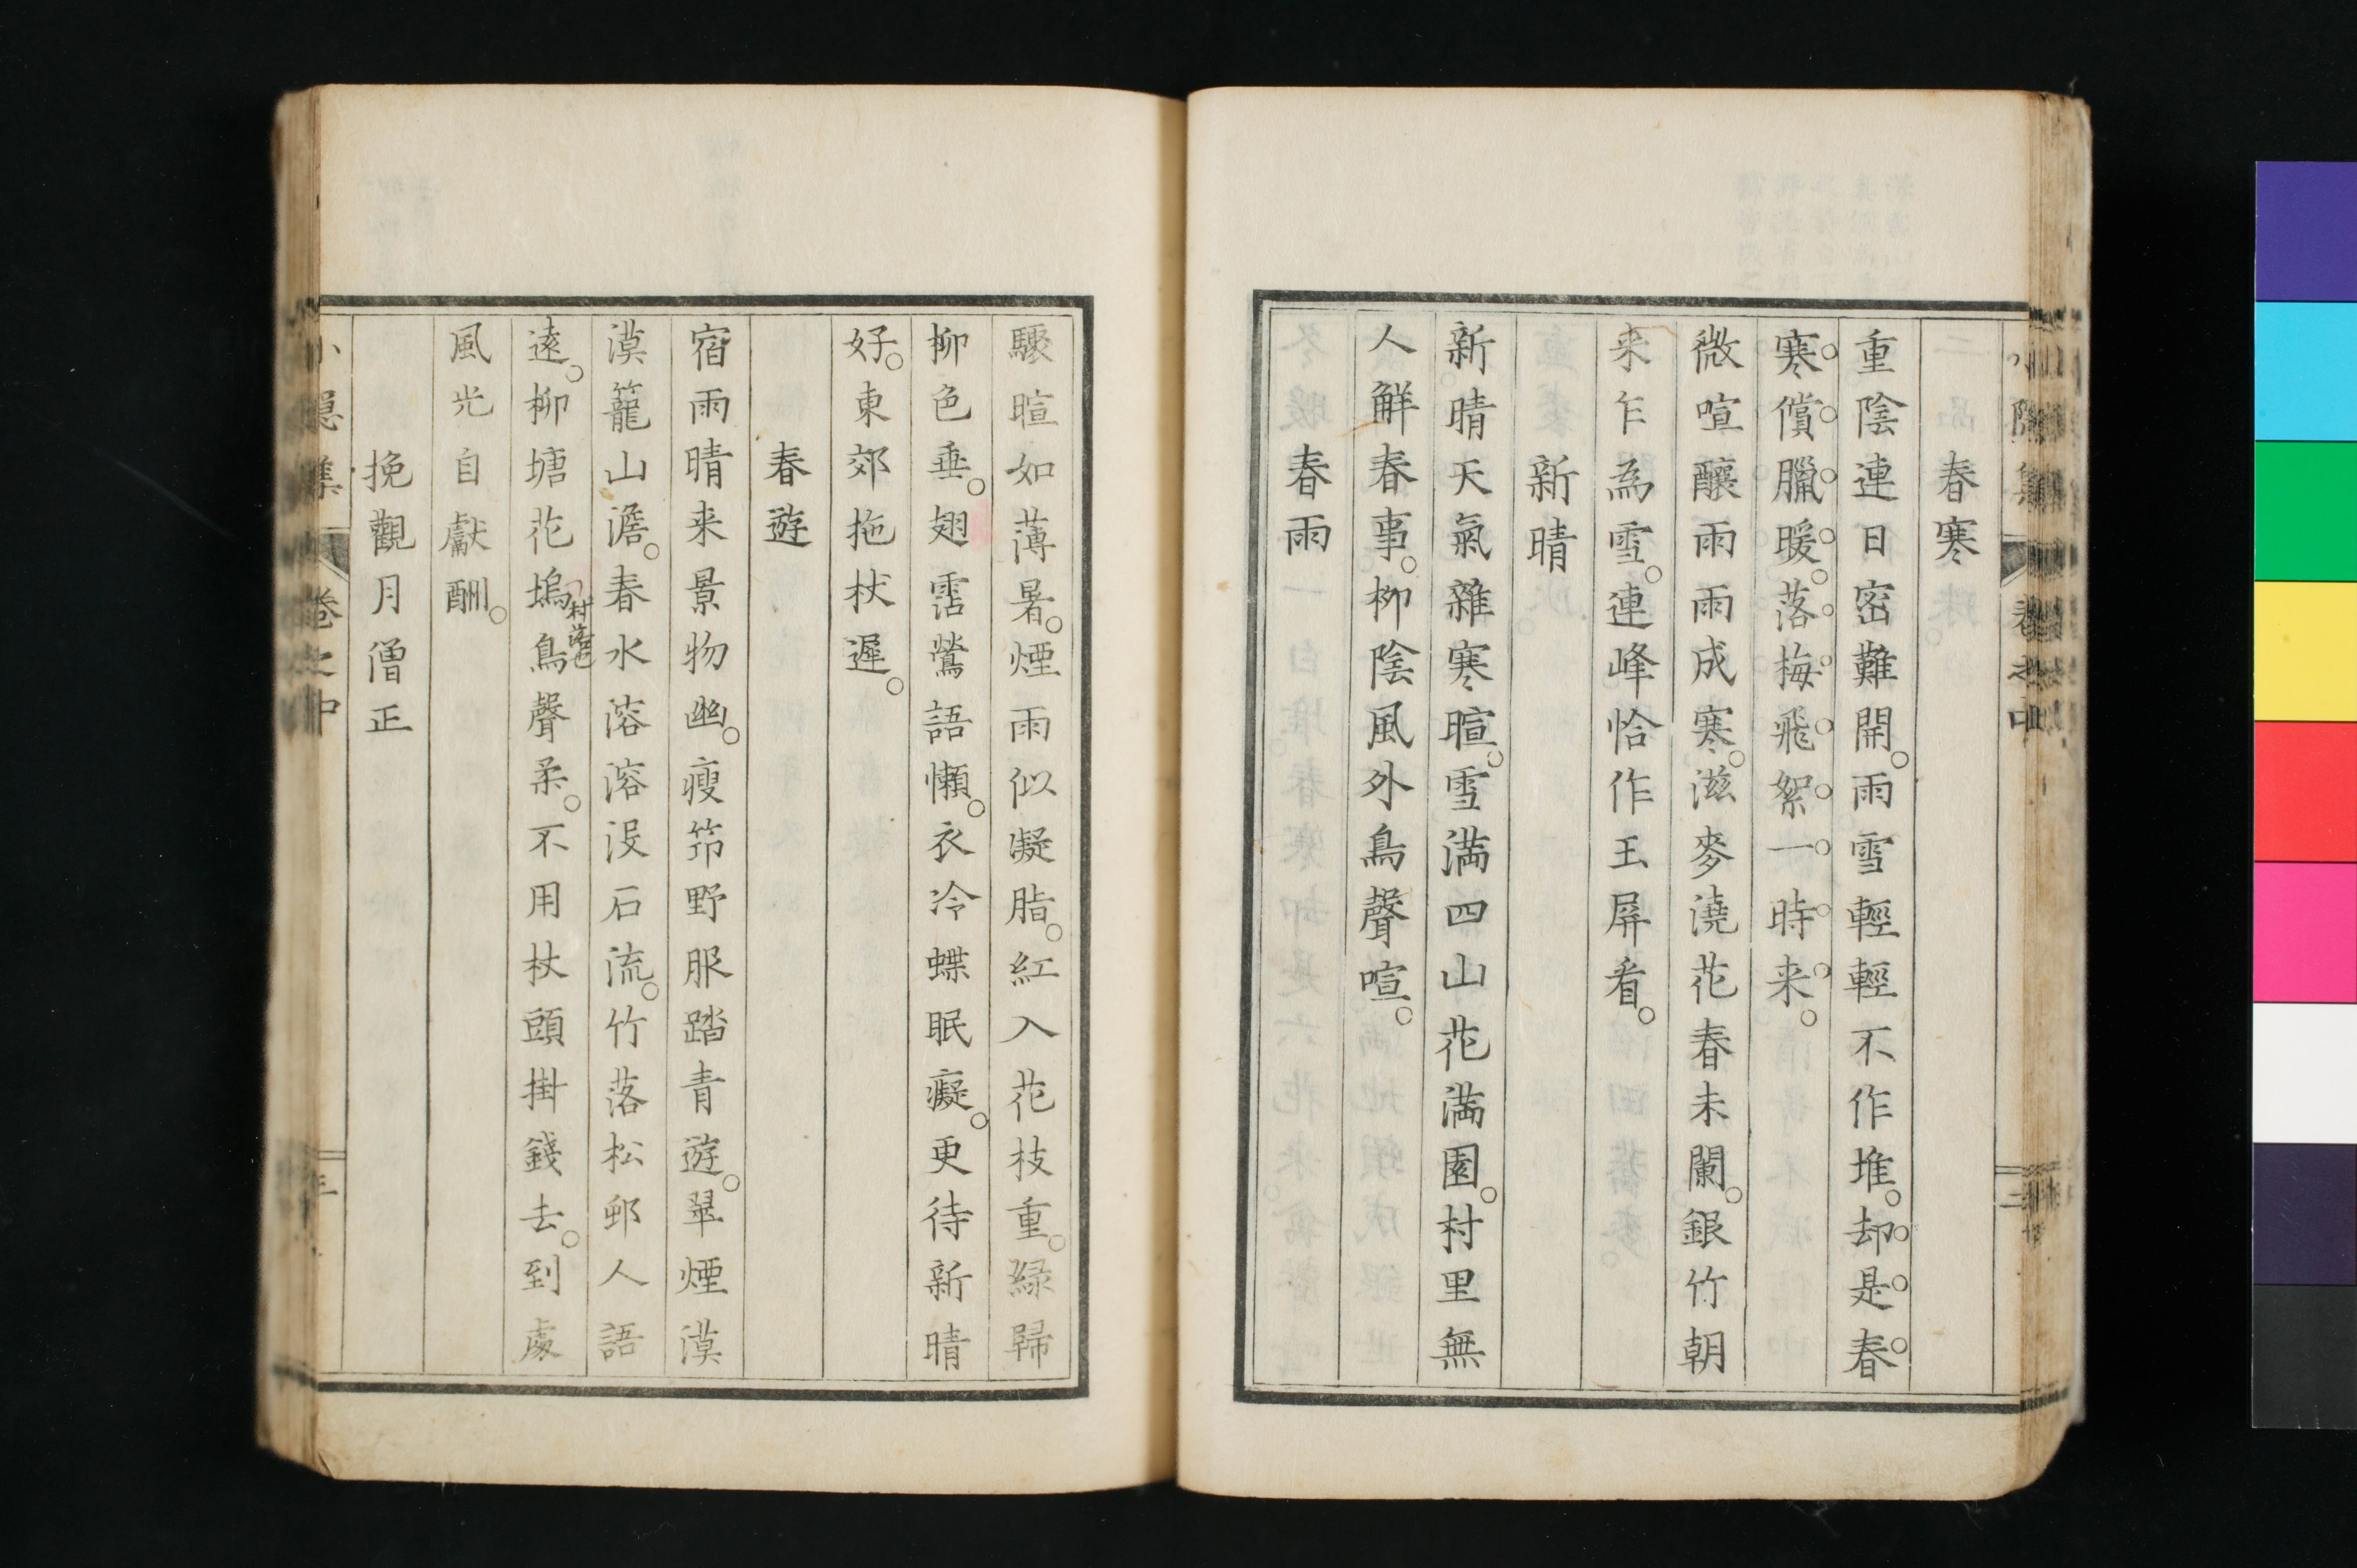 春寒
重陰連日密難開。雨雪輕輕不作堆。却是春
寒償臘暖。落梅飛絮一時来。
微喧釀雨雨成寒。滋麥澆花春未闌。銀竹朝
来乍為雪。連峰恰作玉屏看。
新晴
新晴天氣雜寒暄。雪満四山花満園。村里無
人鮮春事。柳陰風外鳥聲喧。
春雨
驟暄如薄暑。煙雨似凝脂。紅入花枝重。緑歸
柳色垂。翅霑鶯語懶。衣冷蝶眠癡。更待新晴
好。東郊拖杖遲。
春遊
宿雨晴来景物幽。瘦筇野服踏青遊。翠煙漠
漠籠山澹。春水溶溶没石流。竹落松邨人語
遠。柳塘花塢鳥聲柔。不用杖頭掛錢去。到處
村落也
風光自獻酬。
挽觀月僧正
小隱集
卷之中
三